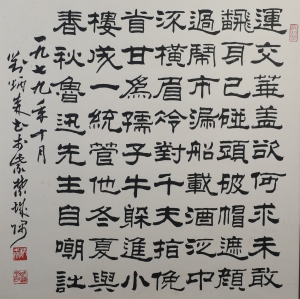 運交華蓋欲何求未敢
翻身已碰頭破帽遮顏
過鬧市漏船載酒泛中
流橫眉冷對千夫指俯
首甘爲孺子牛躲進小
樓成一統管他冬夏與
春秋魯迅先生自嘲詩
一九七九年十月
劉炳森書於